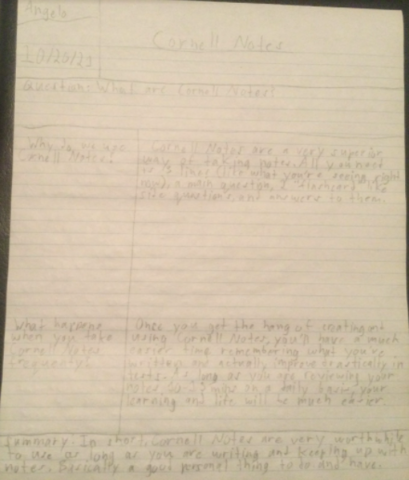 Angelo
Cornell Notes
10/20/23
Question: What are Cornell Notes?
Why do we use
Cornell Notes?
Cornell Notes are a very superior
way of taking notes. All you need
are lines like what you're seeing right
now, a main question, 2 flashcard like
side questions, and answers to them.
What happens
when you take
Cornell Notes
frequently?
Once you get the hang of
using Cornell Notes, you'll have a much
easier time remembering what you're
writing and actually improve in
as long as you are reviewing your
notes on a daily basis, your
learning and life will be much easier.
Summary: In short, Cornell Notes are very worthwhile
to use as long as you are writing and keeping up with
notes. Basically a good normal thing to do and have.